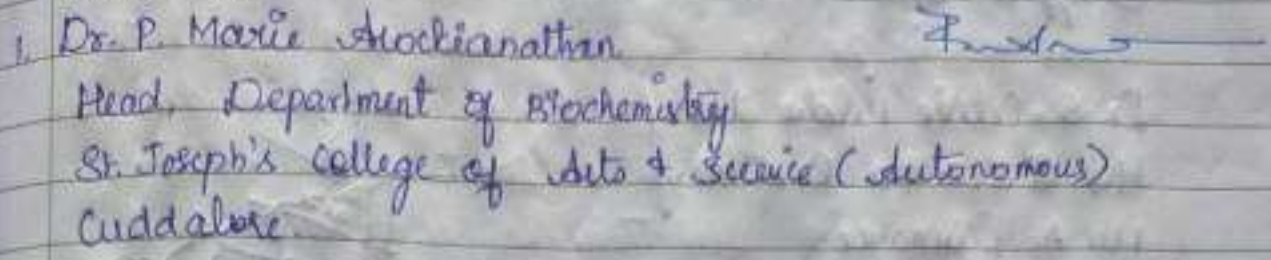 1. Dr. P. Marie Arockianathan
Head, Department of Biochemistry
St. Joseph's college of Arts & Science (Autonomous)
Cuddalore.